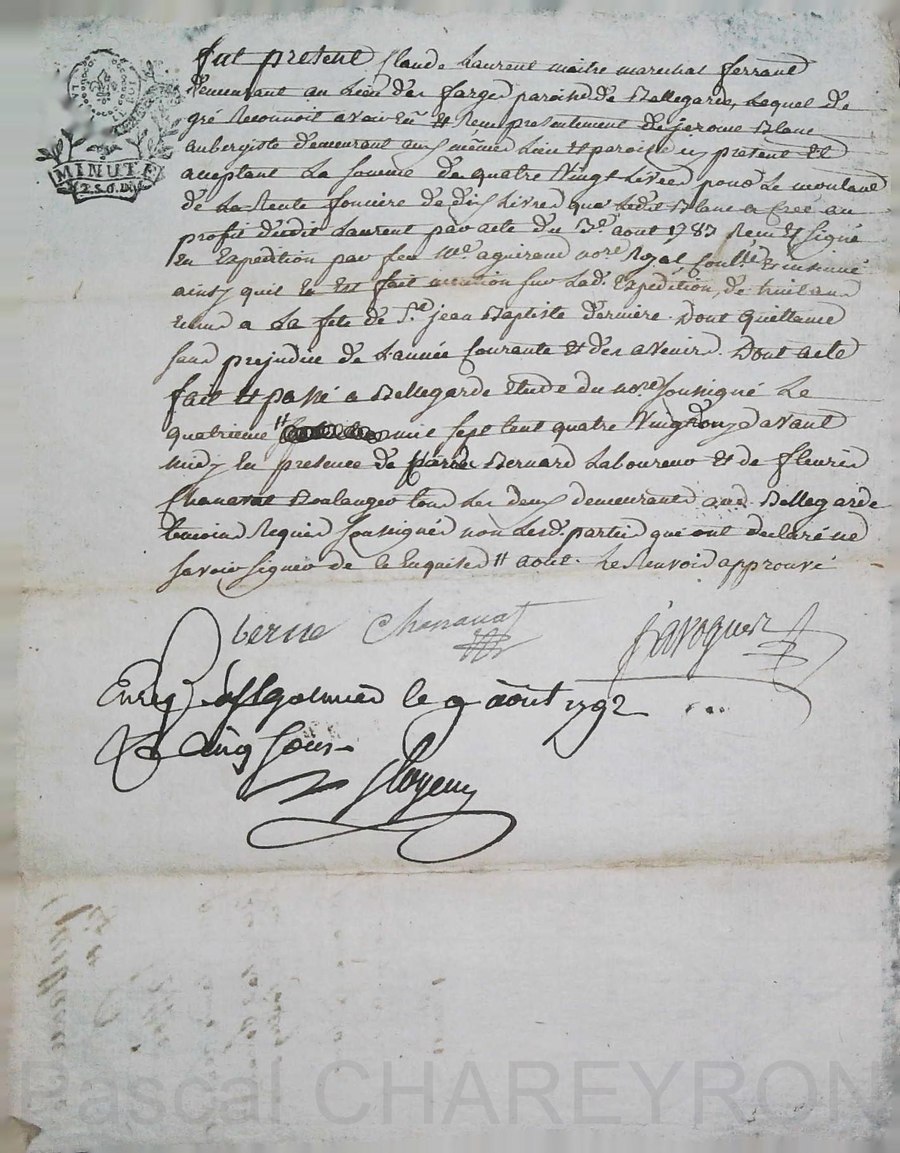 LA LOI
LE ROI
MINUTE
2.S.6.D.
fut present Claude Laurent maitre marechal ferrant
demeurant au Lieu des farges paroisse de Bellegarde, Lequel de
gré Reconnoit avoir Eu et Recu presentement de jerome Blanc
aubergiste demeurant aux mêmes Lieu et paroisse cy present et
acceptant La somme de quatre Vingt Livres pour Le montant
de La Rente fonciere de dix Livres que Ledit Blanc a Creé au
profit dudit Laurent par acte du 3e. aout 1783 Recu et signé
En Expedition par feu Me. aguiraud nore Royal Controllé & insinué
ainsy quil En Est fait mention sur Lad. Expédition, de huit ans
Echus a La fete de St. jean Baptiste derniere. Dont quittance
sans prejudice de L'année Courante et des avenir. Dont acte
fait et passé a Bellegarde Etude du nore soussigné Le
quatrieme " mil sept cent quatre Vingt onze avant
midy En presence de Bernard Laboureur et de fleurie
Chanavat Boulanger tous Les deux demeurant aud. Bellegarde
temoins Requis soussignés non Lesd. parties qui ont declaré ne
savoir signer de ce Enquises " aout. Le Renvoid approuvé
berne Chanavat
Enreg. le 9 août 1792
cinq sous
Pascal CHAREYRON